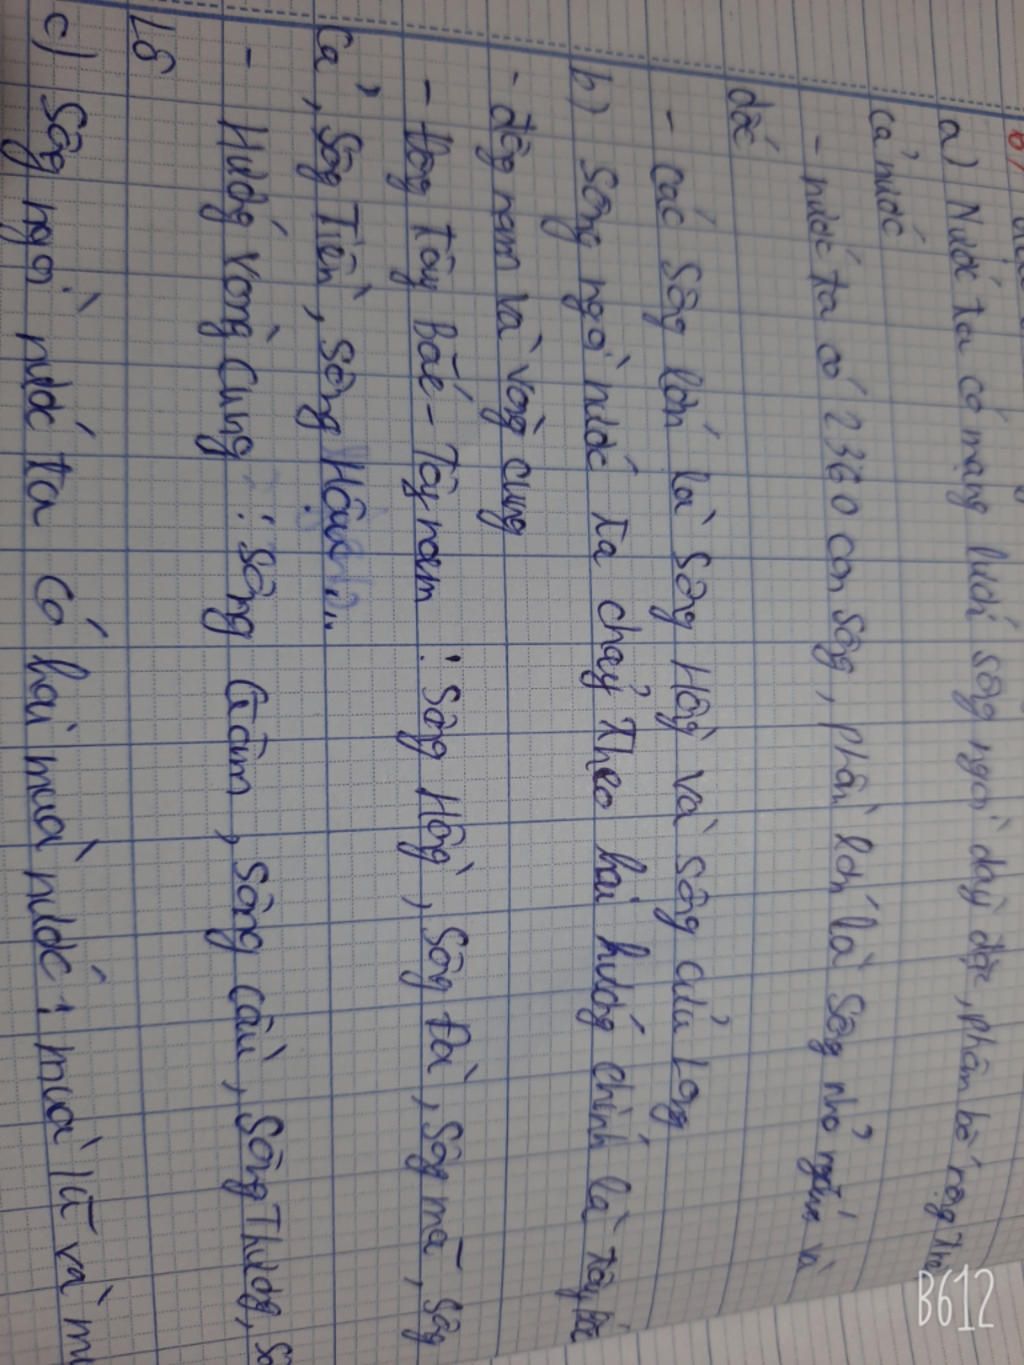 a) Nước ta có mạng lưới sông ngòi dày đặc, phân bố rộng
cả nước
- nước ta có 2360 con sông, phần lớn là sông nhỏ ngắn và
dốc
- các sông lớn là sông Hồng và sông cửu Long
b) sông ngòi nước ta chảy theo hai hướng chính là tây Bắc
- đông nam và vòng cung
- Hướng Tây Bắc - Tây nam : Sông Hồng, Sông Đà, Sông mã, sông
Cả, Sông Tiền, sông Hậu...
- Hướng Vòng cung : sông Gâm, sông cầu, sông Thương, sô
Lô
c) Sông ngòi nước ta có hai mùa nước: mùa lũ và m
B612